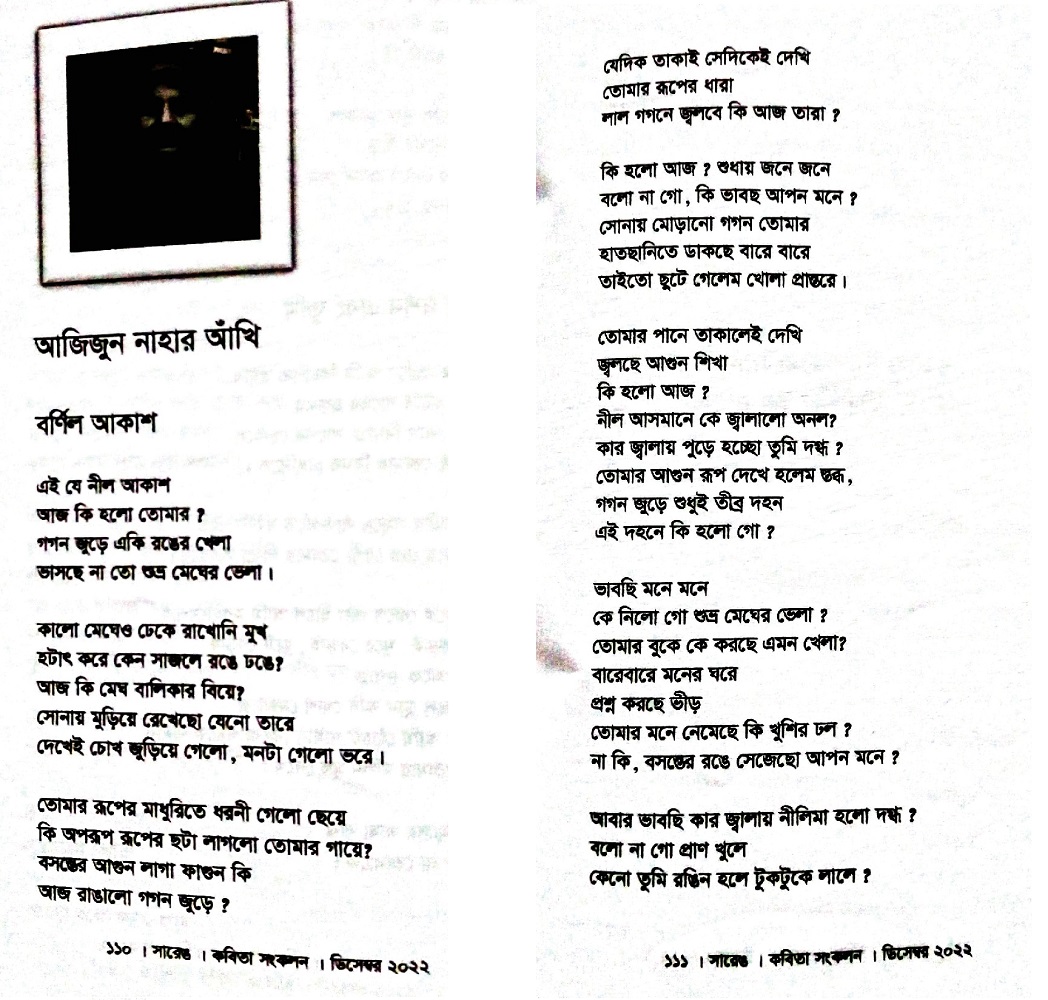 আজিজুন নাহার আঁখি
বর্ণিল আকাশ
এই যে নীল আকাশ
আজ কি হলো তোমার ?
গগন জুড়ে একি রঙের খেলা
ভাসছে না তো শুভ্র মেঘের ভেলা ।
কালো মেঘেও ঢেকে রাখোনি মুখ
হটাৎ করে কেন সাজলে রঙে ঢঙে?
আজ কি মেঘ বালিকার বিয়ে?
সোনায় মুড়িয়ে রেখেছো যেনো তারে
দেখেই চোখ জুড়িয়ে গেলো, মনটা গেলো ভরে ।
তোমার রূপের মাধুরিতে ধরনী গেলো ছেয়ে
কি অপরূপ রূপের ছটা লাগলো তোমার গায়ে?
বসন্তের আগুন লাগা ফাগুন কি
আজ রাঙালো গগন জুড়ে ?
১১০ । সারেঙ । কবিতা সংকলন । ডিসেম্বর ২০২২
যেদিক তাকাই সেদিকেই দেখি
তোমার রূপের ধারা
লাল গগনে জ্বলবে কি আজ তারা ?
কি হলো আজ ? শুধায় জনে জনে
বলো না গো, কি ভাবছ আপন মনে ?
সোনায় মোড়ানো গগন তোমার
হাতছানিতে ডাকছে বারে বারে
তাইতো ছুটে গেলেম খোলা প্রান্তরে ।
তোমার পানে তাকালেই দেখি
জ্বলছে আগুন শিখা
কি হলো আজ ?
নীল আসমানে কে জ্বালালো অনল?
কার জ্বালায় পুড়ে হচ্ছো তুমি দগ্ধ ?
তোমার আগুন রূপ দেখে হলেম স্তব্ধ,
গগন জুড়ে শুধুই তীব্র দহন
এই দহনে কি হলো গো ?
ভাবছি মনে মনে
কে নিলো গো শুভ্র মেঘের ভেলা ?
তোমার বুকে কে করছে এমন খেলা?
বারেবারে মনের ঘরে
প্রশ্ন করছে ভীড়
তোমার মনে নেমেছে কি খুশির ঢল ?
না কি, বসন্তের রঙে সেজেছো আপন মনে ?
আবার ভাবছি কার জ্বালায় নীলিমা হলো দগ্ধ ?
বলো না গো প্রাণ খুলে
কেনো তুমি রঙিন হলে টুকটুকে লালে ?
১১১ । সারেঙ । কবিতা সংকলন । ডিসেম্বর ২০২২